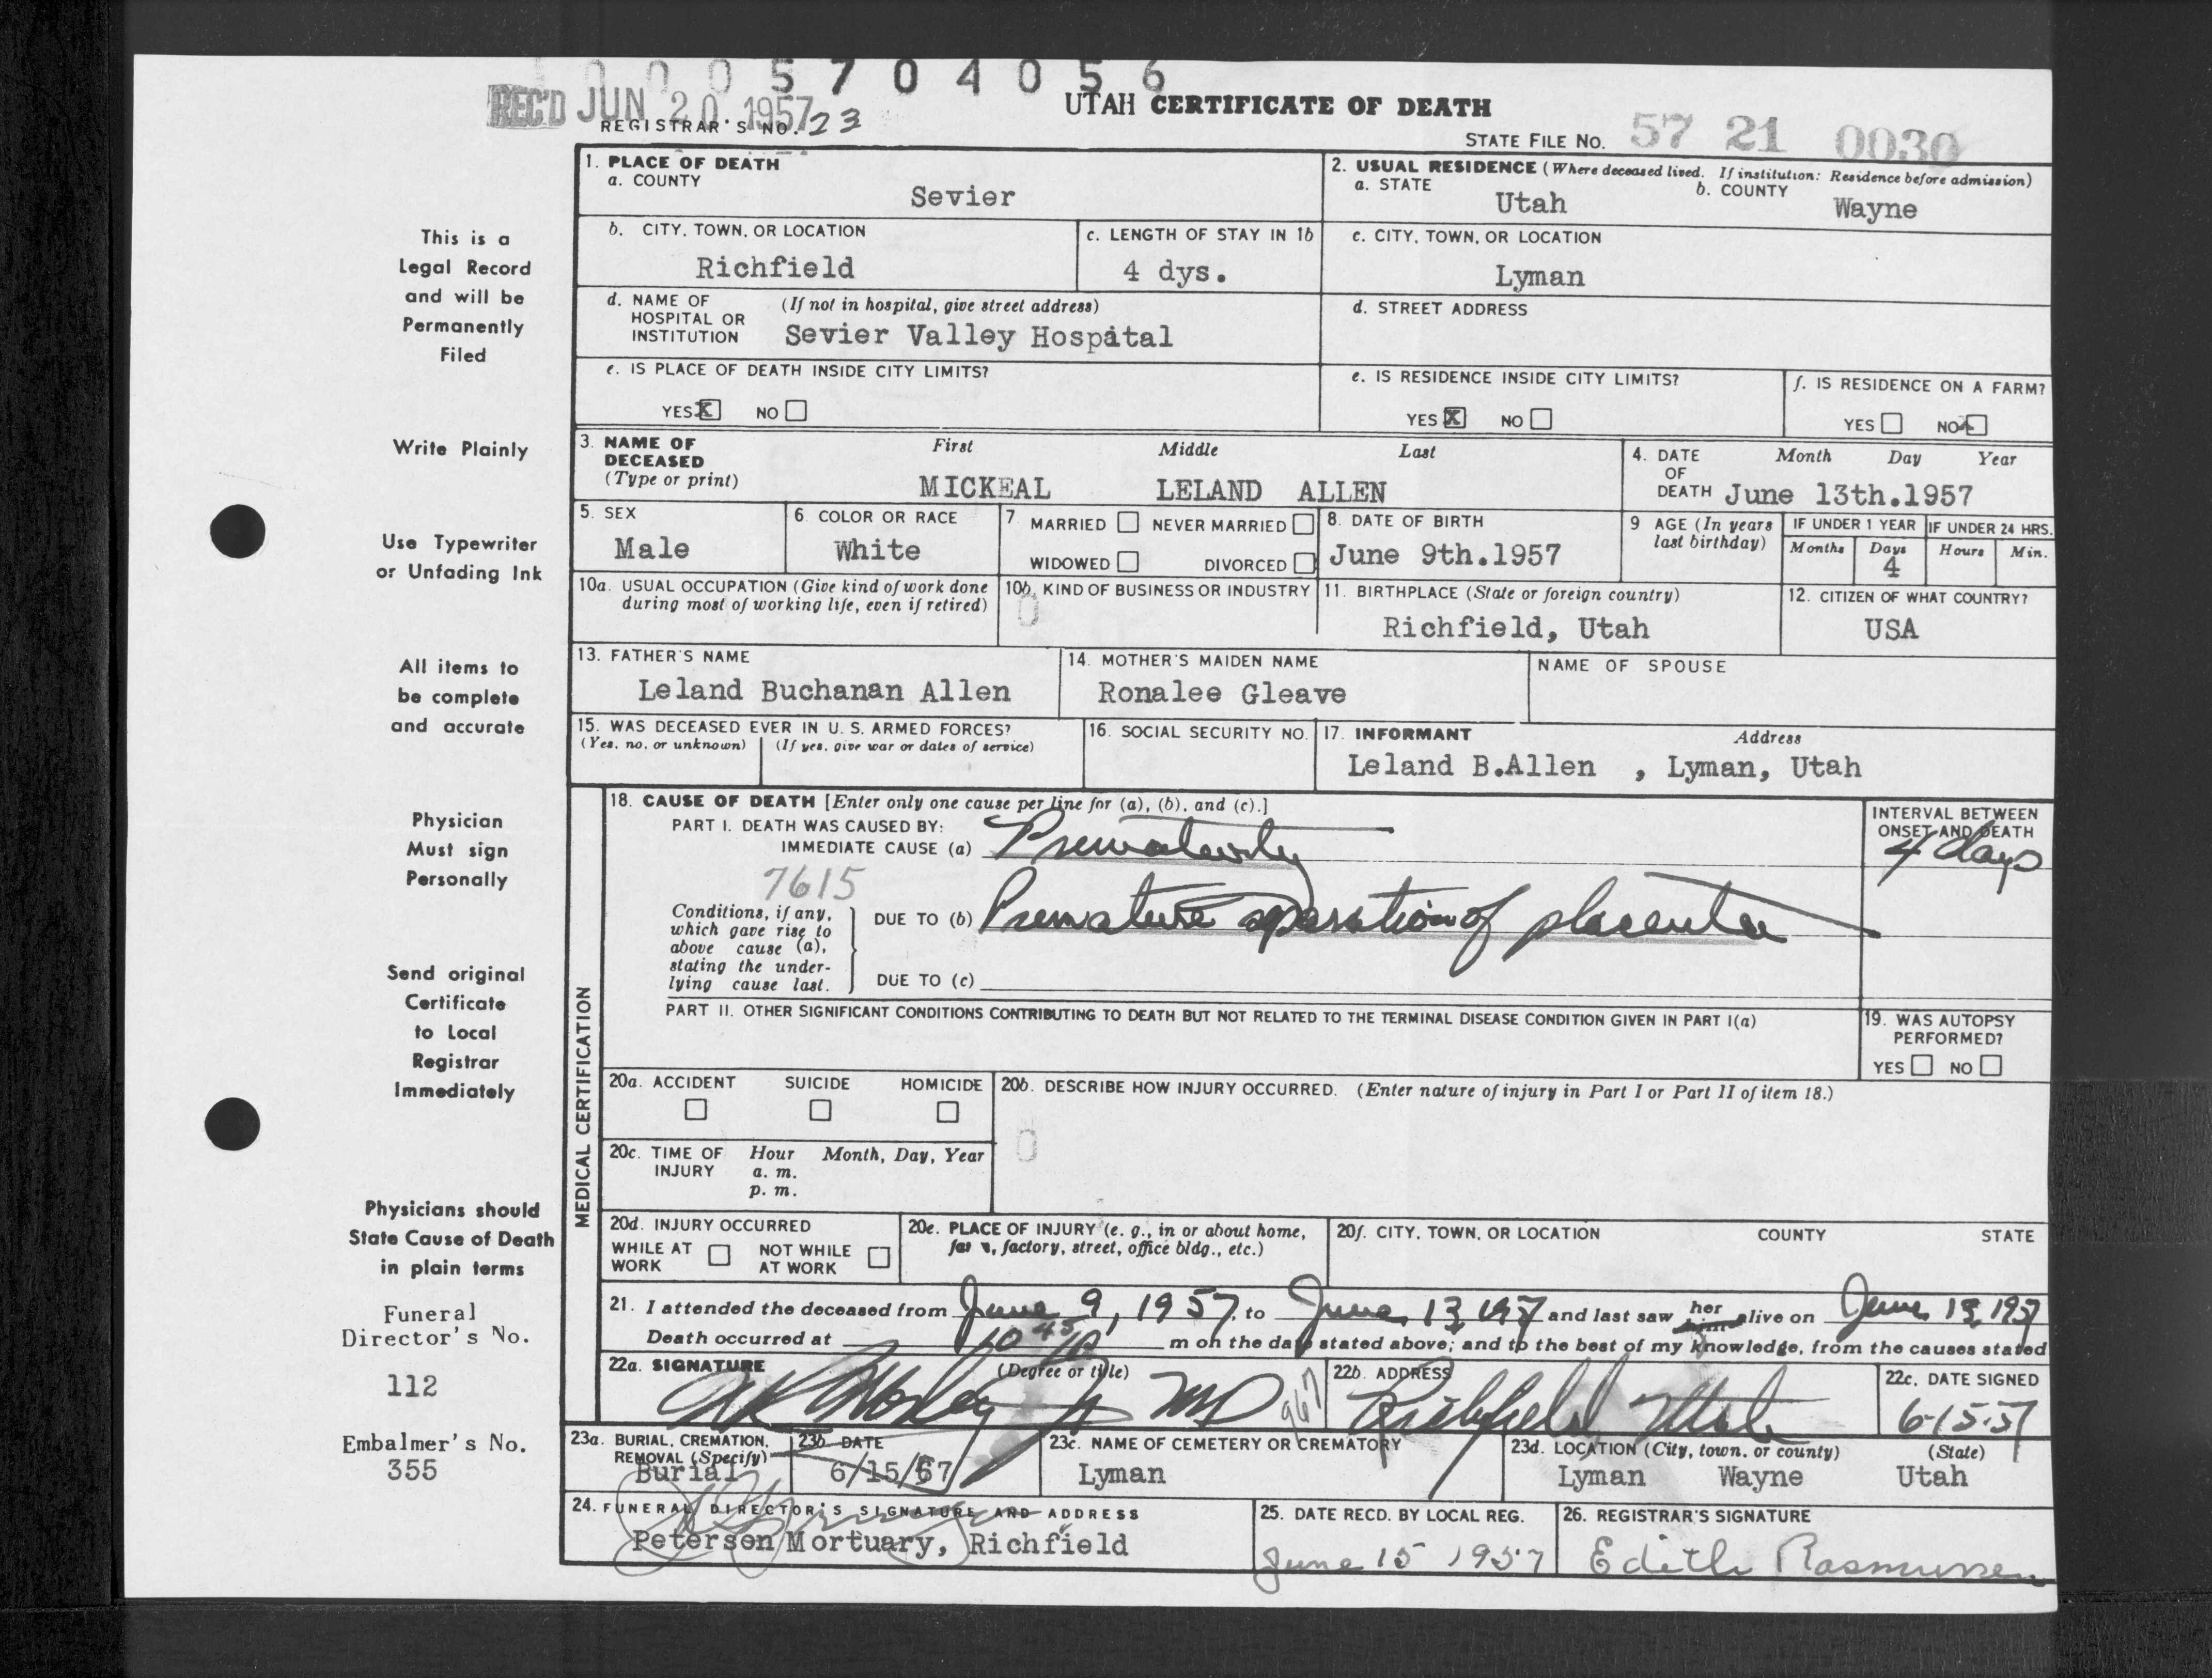 0 0 0 5 7 0 4 0 5 6
REC'D JUN 20 1957
REGISTRAR'S NO. 23
UTAH CERTIFICATE OF DEATH
STATE FILE NO. 57 21 0030
This is a
Legal Record
and will be
Permanently
Filed
Write Plainly
Use Typewriter
or Unfading Ink
All items to
be complete
and accurate
Physician
Must sign
Personally
Send original
Certificate
to Local
Registrar
Immediately
Physicians should
State Cause of Death
in plain terms
Funeral
Director's No.
112
Embalmer's No.
355
1. PLACE OF DEATH
a. COUNTY
Sevier
2. USUAL RESIDENCE (Where deceased lived. If institution: Residence before admission)
a. STATE Utah b. COUNTY Wayne
b. CITY, TOWN, OR LOCATION
Richfield
c. LENGTH OF STAY IN 1b
4 dys.
c. CITY, TOWN, OR LOCATION
Lyman
d. NAME OF HOSPITAL OR INSTITUTION (If not in hospital, give street address)
Sevier Valley Hospital
d. STREET ADDRESS
e. IS PLACE OF DEATH INSIDE CITY LIMITS?
YES X NO
e. IS RESIDENCE INSIDE CITY LIMITS?
YES X NO
f. IS RESIDENCE ON A FARM?
YES NO X
3. NAME OF DECEASED (Type or print)
First Middle Last
MICKEAL LELAND ALLEN
4. DATE OF DEATH Month Day Year
June 13th.1957
5. SEX
Male
6. COLOR OR RACE
White
7. MARRIED NEVER MARRIED
WIDOWED DIVORCED
8. DATE OF BIRTH
June 9th.1957
9 AGE (In years last birthday)
IF UNDER 1 YEAR IF UNDER 24 HRS.
Months Days Hours Min.
4
10a. USUAL OCCUPATION (Give kind of work done during most of working life, even if retired)
10b. KIND OF BUSINESS OR INDUSTRY
0
11. BIRTHPLACE (State or foreign country)
Richfield, Utah
12. CITIZEN OF WHAT COUNTRY?
USA
13. FATHER'S NAME
Leland Buchanan Allen
14. MOTHER'S MAIDEN NAME
Ronalee Gleave
NAME OF SPOUSE
15. WAS DECEASED EVER IN U. S. ARMED FORCES?
(Yes, no, or unknown) (If yes, give war or dates of service)
16. SOCIAL SECURITY NO.
17. INFORMANT Address
Leland B.Allen , Lyman, Utah
MEDICAL CERTIFICATION
18. CAUSE OF DEATH [Enter only one cause per line for (a), (b), and (c).]
PART I. DEATH WAS CAUSED BY:
IMMEDIATE CAUSE (a) Prematurity
INTERVAL BETWEEN ONSET AND DEATH
4 days
7615
Conditions, if any, which gave rise to above cause (a), stating the underlying cause last.
DUE TO (b) Premature separation of placenta
DUE TO (c)
PART II. OTHER SIGNIFICANT CONDITIONS CONTRIBUTING TO DEATH BUT NOT RELATED TO THE TERMINAL DISEASE CONDITION GIVEN IN PART I(a)
19. WAS AUTOPSY PERFORMED?
YES NO
20a. ACCIDENT SUICIDE HOMICIDE
20b. DESCRIBE HOW INJURY OCCURRED. (Enter nature of injury in Part I or Part II of item 18.)
0
20c. TIME OF INJURY Hour Month, Day, Year
a. m.
p. m.
20d. INJURY OCCURRED
WHILE AT WORK NOT WHILE AT WORK
20e. PLACE OF INJURY (e. g., in or about home, farm, factory, street, office bldg., etc.)
20f. CITY, TOWN, OR LOCATION COUNTY STATE
21. I attended the deceased from June 9, 1957, to June 13, 1957 and last saw her him alive on June 13, 1957
Death occurred at 10 45 p m on the date stated above; and to the best of my knowledge, from the causes stated
22a. SIGNATURE (Degree or title)
MD
967
22b. ADDRESS
Richfield, Utah
22c. DATE SIGNED
6-15-57
23a. BURIAL, CREMATION, REMOVAL (Specify)
Burial
23b DATE
6/15/57
23c. NAME OF CEMETERY OR CREMATORY
Lyman
23d. LOCATION (City, town, or county) (State)
Lyman Wayne Utah
24. FUNERAL DIRECTOR'S SIGNATURE AND ADDRESS
Petersen Mortuary, Richfield
25. DATE RECD. BY LOCAL REG.
June 15 1957
26. REGISTRAR'S SIGNATURE
Edith Rasmussen